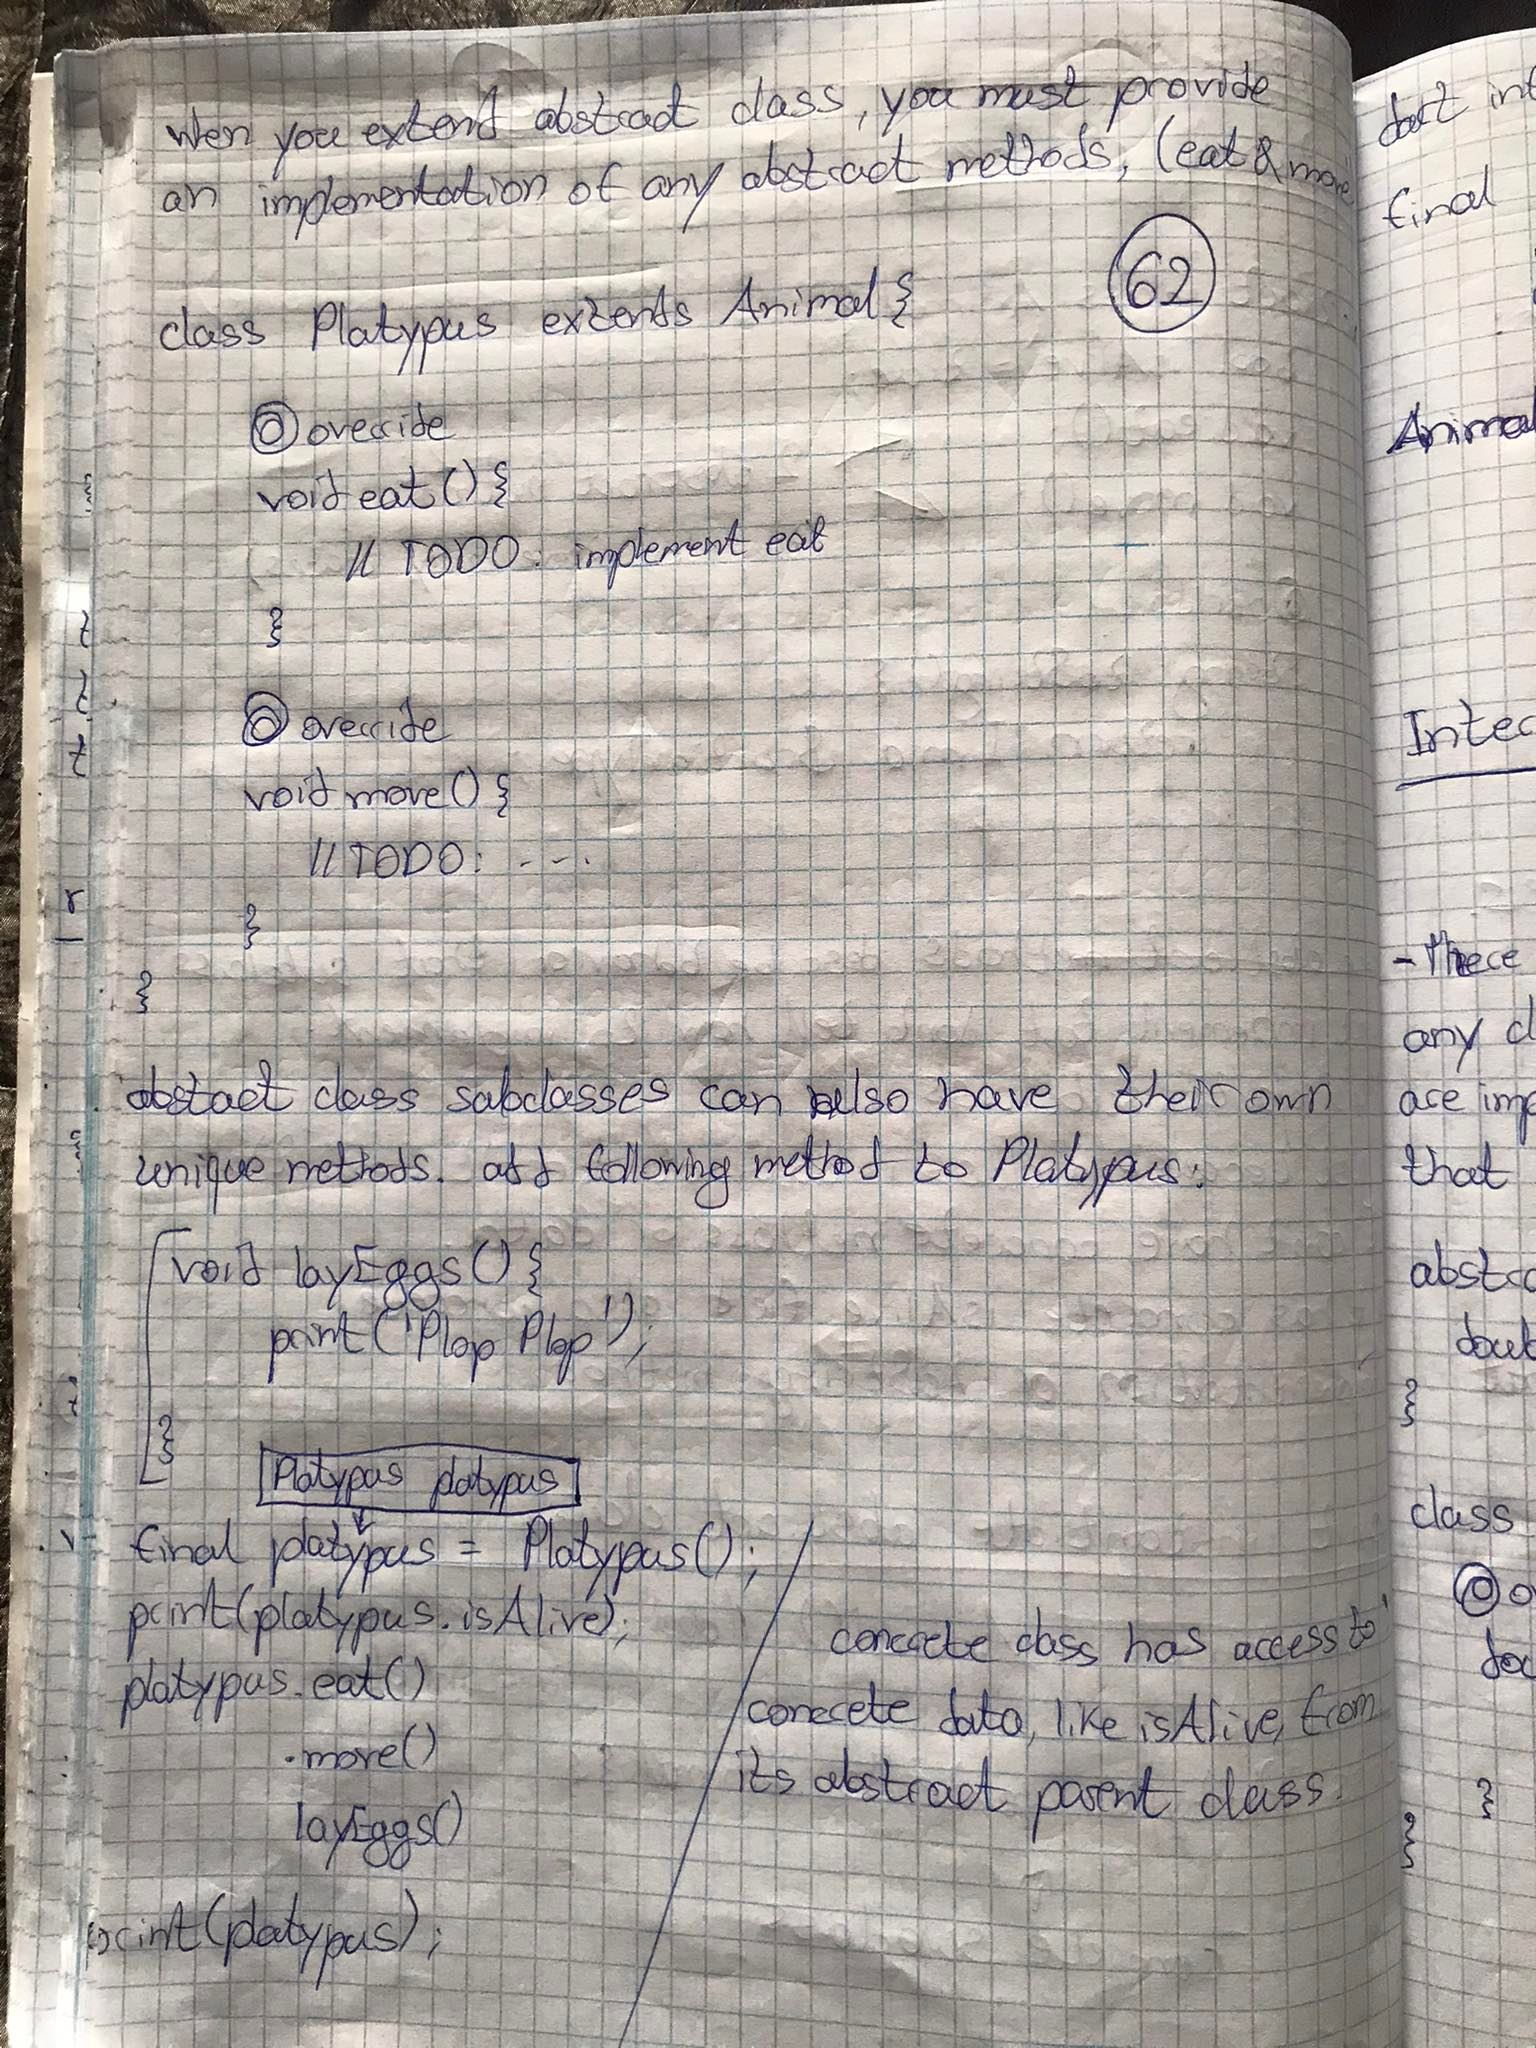 when you extend abstract class, you must provide
an implementation of any abstract methods, (eat & move
62
class Platypus extends Animal {
@override
void eat() {
// TODO: implement eat
}
@override
void move() {
// TODO: ---.
}
}
abstact class subclasses can also have their own
unique methods. add following method to Platypus:
void layEggs() {
print('Plop Plop');
}
Platypus platypus
final platypus = Platypus();
print(platypus.isAlive);
platypus.eat()
.move()
layEggs()
print(platypus);
concrete class has access to
concrete data, like isAlive, from
its abstract parent class.
dart int
final
Animal
Inter
- There
any d
are imp
that
abstra
doub
}
class
@o
dou
}
}